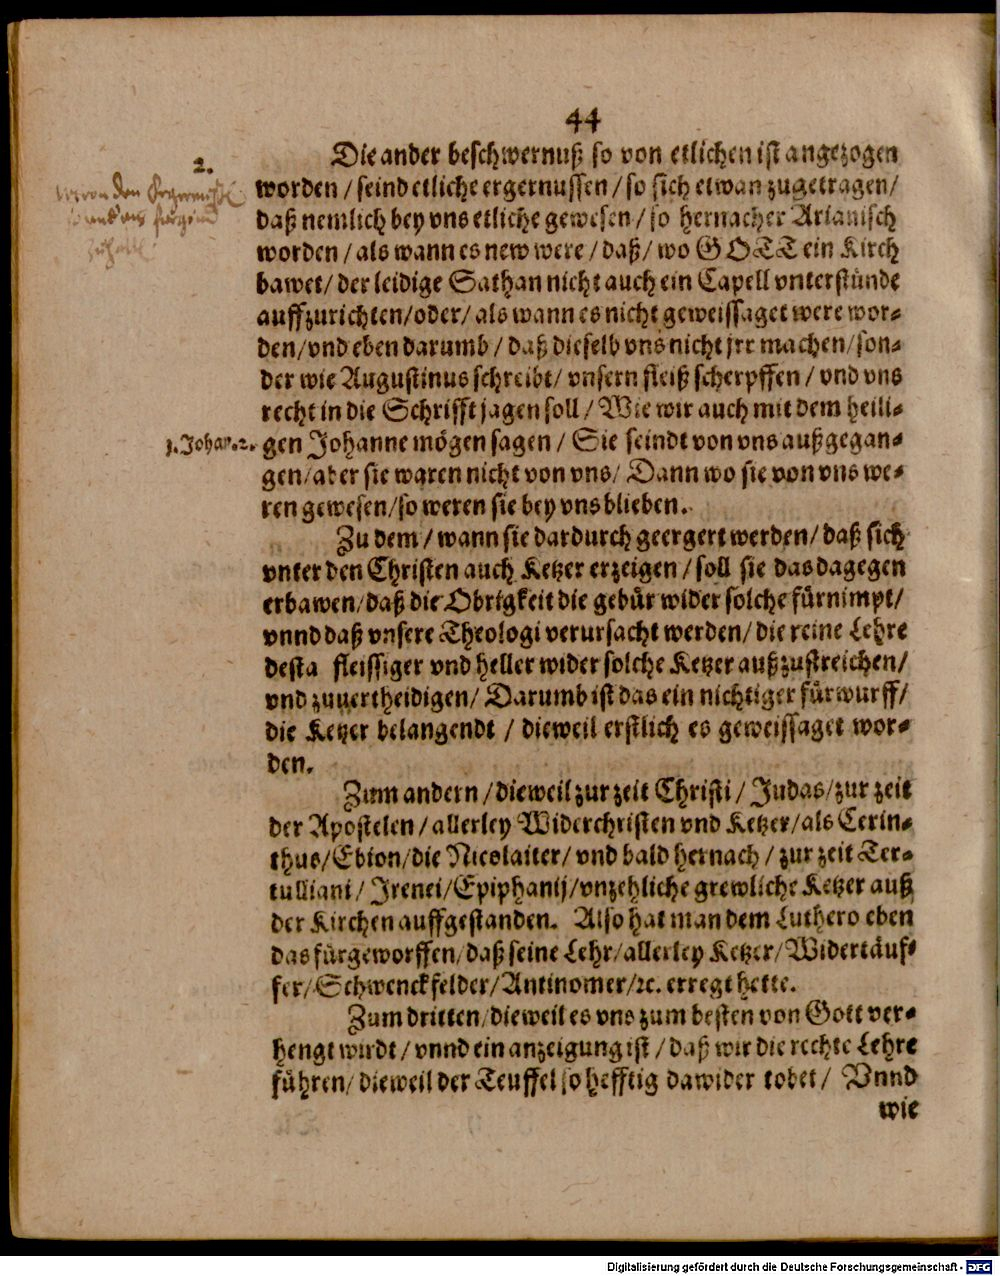 44
Die ander beschwernuß so von etlichen ist angezogen
2.
worden / seind etliche ergernussen / so sich etwan zugetragen /
daß nemlich bey vns etliche gewesen / so hernacher Arianisch
worden / als wann es new were / daß / wo GOTT ein Kirch
bawet / der leidige Sathan nicht auch ein Capell vnterstünde
auffzurichten / oder / als wann es nicht geweissaget were wor-
den / vnd eben darumb / daß dieselb vns nicht jrr machen / son-
der wie Augustinus schreibt / vnsern fleiß scherpffen / vnd vns
recht in die Schrifft jagen soll / Wie wir auch mit dem heili-
1. Johan. 2.
gen Johanne mögen sagen / Sie seindt von vns außgegan-
gen / aber sie waren nicht von vns / Dann wo sie von vns we-
ren gewesen / so weren sie bey vns blieben.
Zu dem / wann sie dardurch geergert werden / daß sich
vnter den Christen auch Ketzer erzeigen / soll sie das dagegen
erbawen / daß die Obrigkeit die gebür wider solche fürnimpt /
vnnd daß vnsere Theologi verursacht werden / die reine Lehre
desta fleissiger vnd heller wider solche Ketzer außzustreichen /
vnd zuuertheidigen / Darumb ist das ein nichtiger fürwurff /
die Ketzer belangendt / dieweil erstlich es geweissaget wor-
den.
Zum andern / dieweil zur zeit Christi / Judas / zur zeit
der Apostelen / allerley Widerchristen vnd Ketzer / als Cerin-
thus / Ebion / die Nicolaiter / vnd bald hernach / zur zeit Ter-
tulliani / Irenei / Epiphanij / vnzehliche grewliche Ketzer auß
der Kirchen auffgestanden. Also hat man dem Luthero eben
das fürgeworffen / daß seine Lehr / allerley Ketzer / Widertäuf-
fer / Schwenckfelder / Antinomer / ꝛc. erregt hette.
Zum dritten / dieweil es vns zum besten von Gott ver-
hengt wirdt / vnnd ein anzeigung ist / daß wir die rechte Lehre
führen / dieweil der Teuffel so hefftig dawider tobet / Vnnd
wie
Digitalisierung gefördert durch die Deutsche Forschungsgemeinschaft - DFG